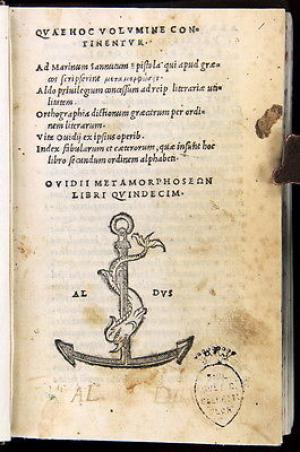 QVAE HOC VOLVMINE CON-
TINENTVR.
Ad Marinum Sannutum Epistola qui apud græ-
cos scripserint μεταμορφώσεις.
Aldo priuilegium concessum ad reip. literariæ uti-
litatem.
Orthographia dictionum græcarum per ordi-
nem literarum.
Vita Ouidij ex ipsius operib.
Index fabularum et cæterorum, quæ insunt hoc
libro secundum ordinem alphabeti.
OVIDII METAMORPHOSEΩN
LIBRI QVINDECIM.
AL DVS
AL D